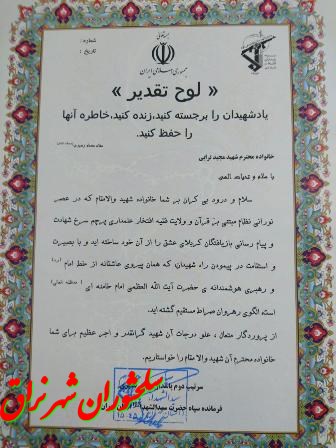 بسمه‌تعالی
شماره :
تاریخ :
جمهوری اسلامی ایران
« لوح تقدیر »
یادشهیدان را برجسته کنید،زنده کنید،خاطره آنها
را حفظ کنید.
مقام معظم رهبری
خانواده محترم شهید مجید ترابی
با سلام و تحیات الهی
سلام و درود بی کران بر شما خانواده شهید والامقام که در عصر
نورانی نظام مبتنی بر قرآن و ولایت فقیه افتخار علمداری پرچم سرخ شهادت
و پیام رسانی بازیافتگان کربلای عشق را از آن خود ساخته اید و با بصیرت و
استقامت در پیمودن راه شهیدان، که همان پیروی عاشقانه از خط امام (ره)
و رهبری هوشمندانه ی حضرت آیت الله العظمی امام خامنه ای (مدظله العالی)
است، الگوی رهروان صراط مستقیم گشته اید.
از پروردگار متعال ، علو درجات آن شهید گرانقدر و اجر عظیم برای شما
خانواده محترم آن شهید والا مقام را خواستاریم.
سرتیپ دوم پاسدار
فرمانده سپاه حضرت سیدالشهدا
سلحشوران شهر نراق